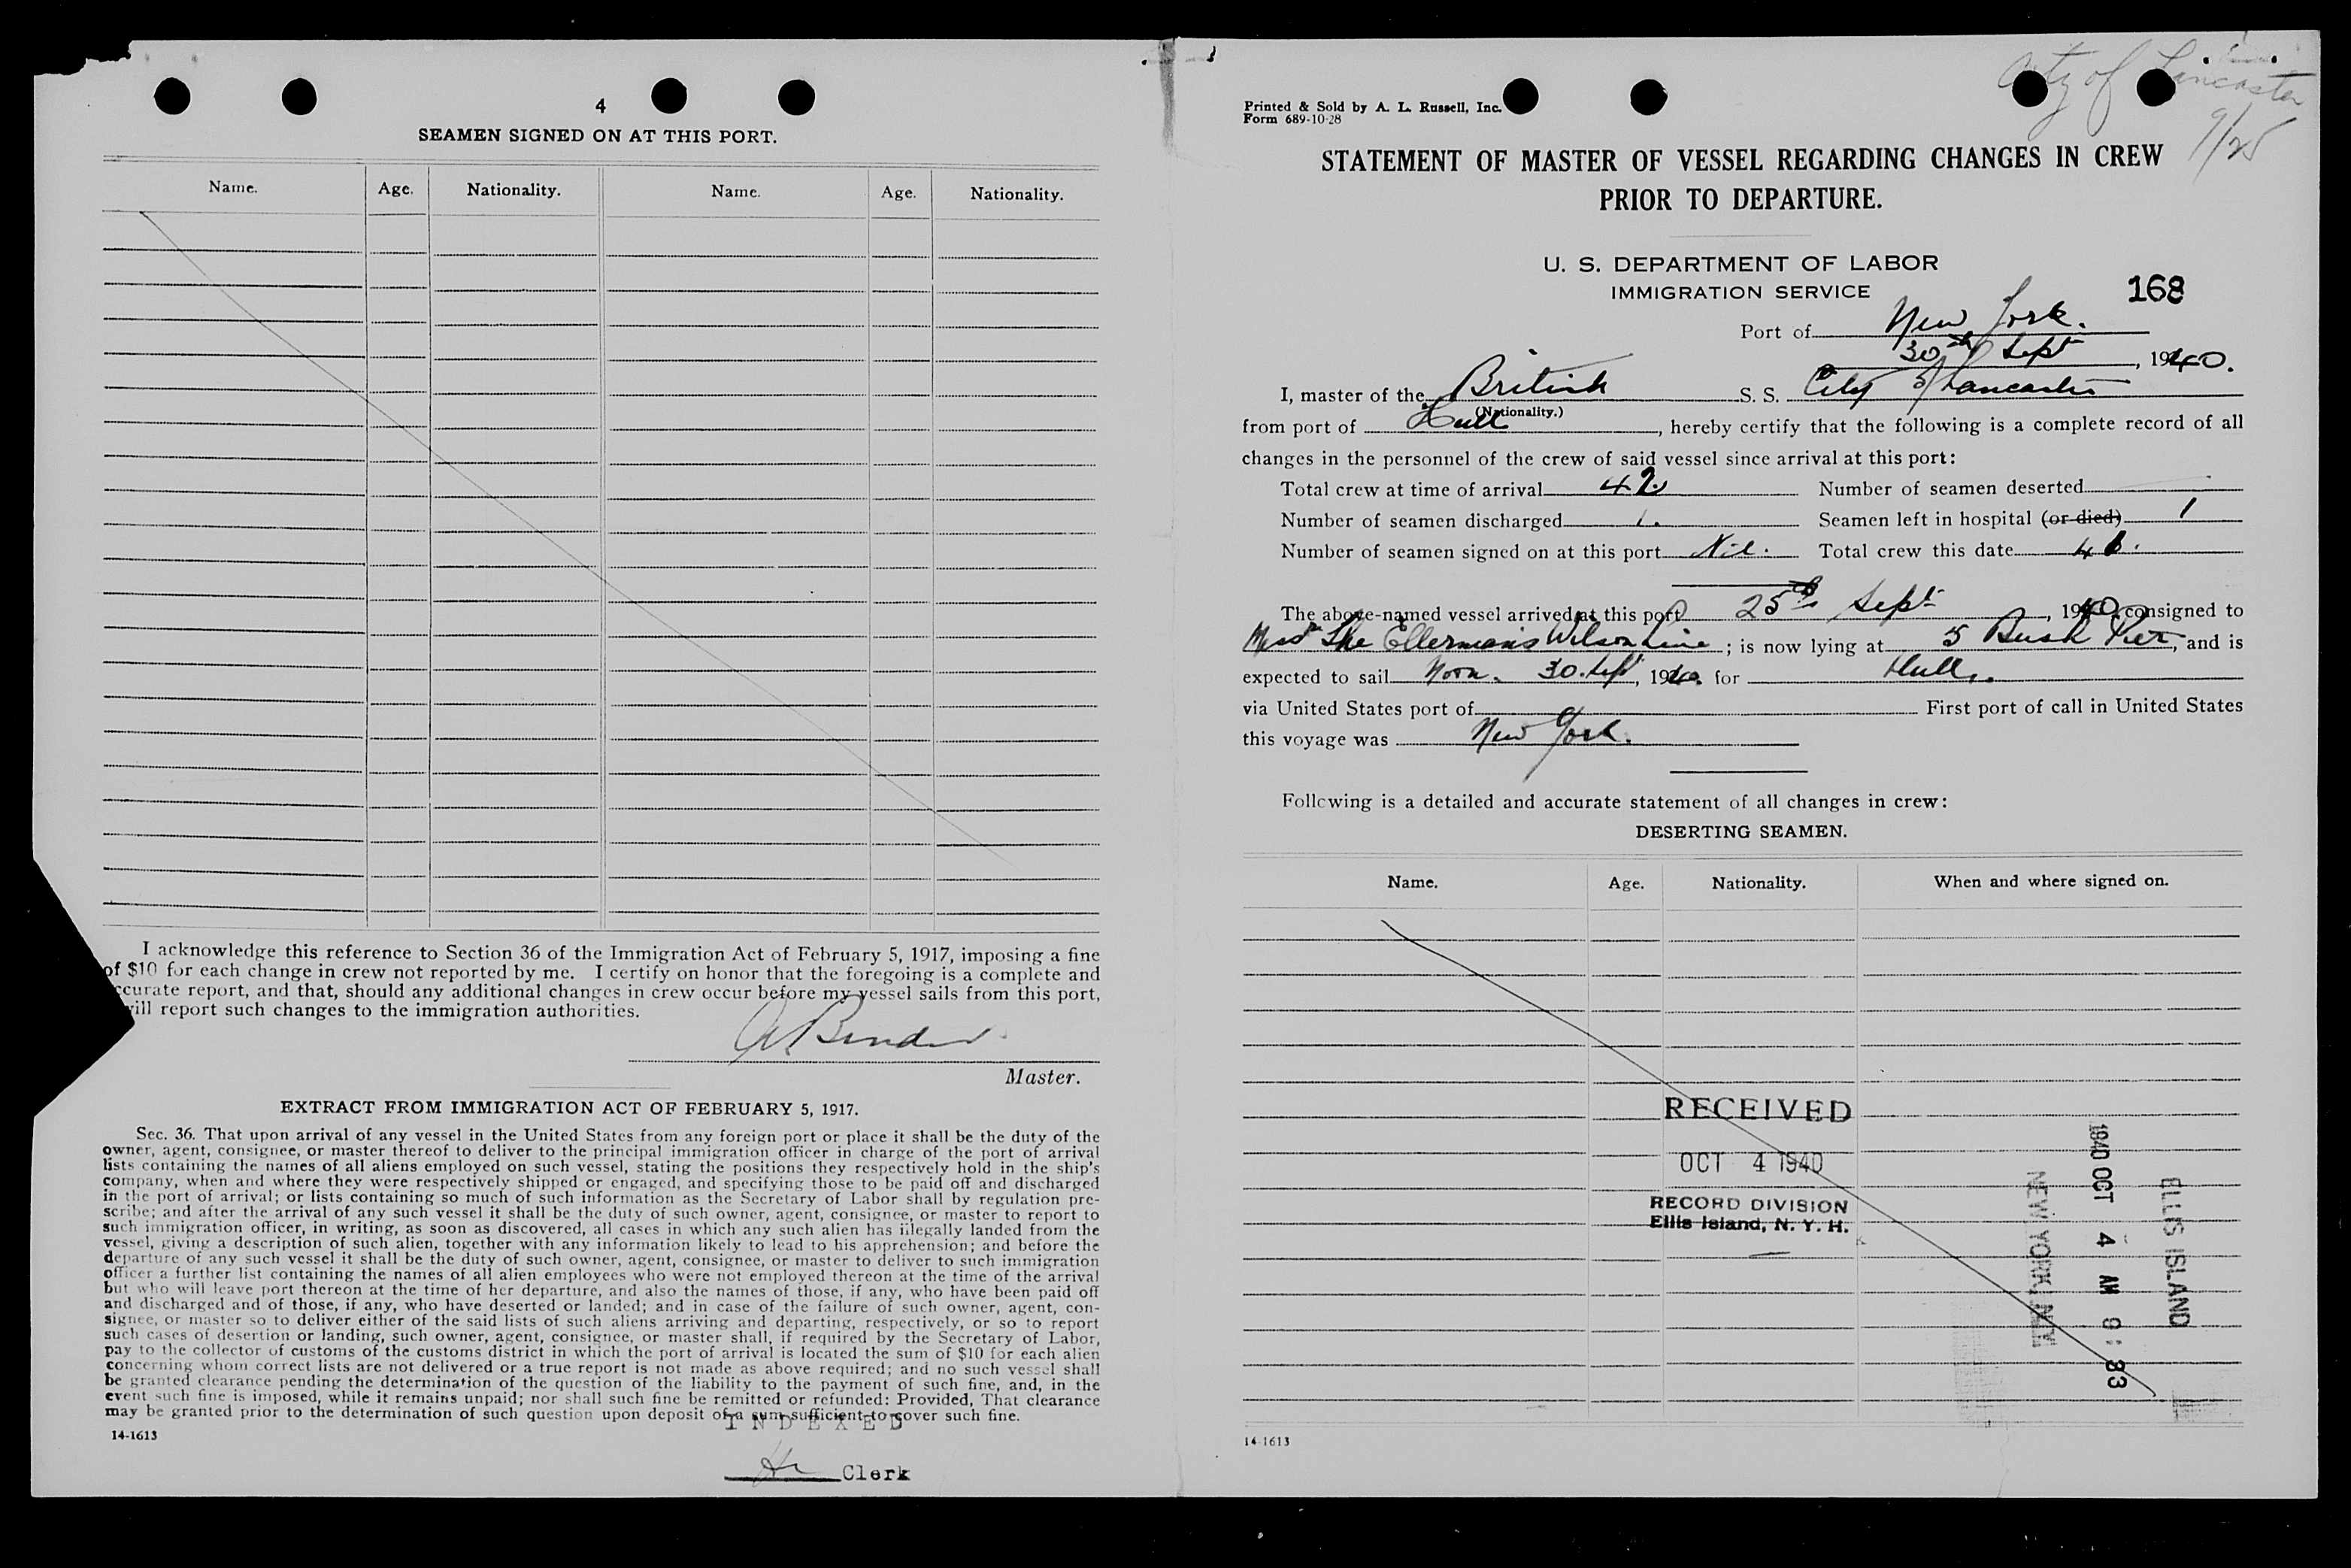 4
SEAMEN SIGNED ON AT THIS PORT.
Name. Age. Nationality. Name. Age. Nationality.
I acknowledge this reference to Section 36 of the Immigration Act of February 5, 1917, imposing a fine
of $10 for each change in crew not reported by me. I certify on honor that the foregoing is a complete and
ccurate report, and that, should any additional changes in crew occur before my vessel sails from this port,
will report such changes to the immigration authorities.
Master.
EXTRACT FROM IMMIGRATION ACT OF FEBRUARY 5, 1917.
Sec. 36. That upon arrival of any vessel in the United States from any foreign port or place it shall be the duty of the
owner, agent, consignee, or master thereof to deliver to the principal immigration officer in charge of the port of arrival
lists containing the names of all aliens employed on such vessel, stating the positions they respectively hold in the ship's
company, when and where they were respectively shipped or engaged, and specifying those to be paid off and discharged
in the port of arrival; or lists containing so much of such information as the Secretary of Labor shall by regulation pre-
scribe; and after the arrival of any such vessel it shall be the duty of such owner, agent, consignee, or master to report to
such immigration officer, in writing, as soon as discovered, all cases in which any such alien has illegally landed from the
vessel, giving a description of such alien, together with any information likely to lead to his apprehension; and before the
departure of any such vessel it shall be the duty of such owner, agent, consignee, or master to deliver to such immigration
officer a further list containing the names of all alien employees who were not employed thereon at the time of the arrival
but who will leave port thereon at the time of her departure, and also the names of those, if any, who have been paid off
and discharged and of those, if any, who have deserted or landed; and in case of the failure of such owner, agent, con-
signee, or master so to deliver either of the said lists of such aliens arriving and departing, respectively, or so to report
such cases of desertion or landing, such owner, agent, consignee, or master shall, if required by the Secretary of Labor,
pay to the collector of customs of the customs district in which the port of arrival is located the sum of $10 for each alien
concerning whom correct lists are not delivered or a true report is not made as above required; and no such vessel shall
be granted clearance pending the determination of the question of the liability to the payment of such fine, and, in the
event such fine is imposed, while it remains unpaid; nor shall such fine be remitted or refunded: Provided, That clearance
may be granted prior to the determination of such question upon deposit of a sum sufficient to cover such fine.
INDEXED
14-1613
Clerk
City of Lancaster
9/25
Printed & Sold by A. L. Russell, Inc.
Form 689-10-28
STATEMENT OF MASTER OF VESSEL REGARDING CHANGES IN CREW
PRIOR TO DEPARTURE.
U. S. DEPARTMENT OF LABOR
IMMIGRATION SERVICE
168
Port of New York.
30th Sept, 1940.
I, master of the British S. S. City of Lancaster
(Nationality.)
from port of Hull, hereby certify that the following is a complete record of all
changes in the personnel of the crew of said vessel since arrival at this port:
Total crew at time of arrival 42 Number of seamen deserted
Number of seamen discharged 1. Seamen left in hospital (or died) 1
Number of seamen signed on at this port Nil. Total crew this date
The above-named vessel arrived at this port 25th Sept, 1940, consigned to
The Ellerman's Wilson Line; is now lying at 5 Bush Pier, and is
expected to sail Noon. 30. Sept, 1940 for Hull.
via United States port of First port of call in United States
this voyage was New York.
Following is a detailed and accurate statement of all changes in crew:
DESERTING SEAMEN.
Name. Age. Nationality. When and where signed on.
RECEIVED
OCT 4 1940
RECORD DIVISION
Ellis Island, N. Y. H.
ELLIS ISLAND
1940 OCT 4 AM 9: 33
NEW YORK, N.Y.
14-1613